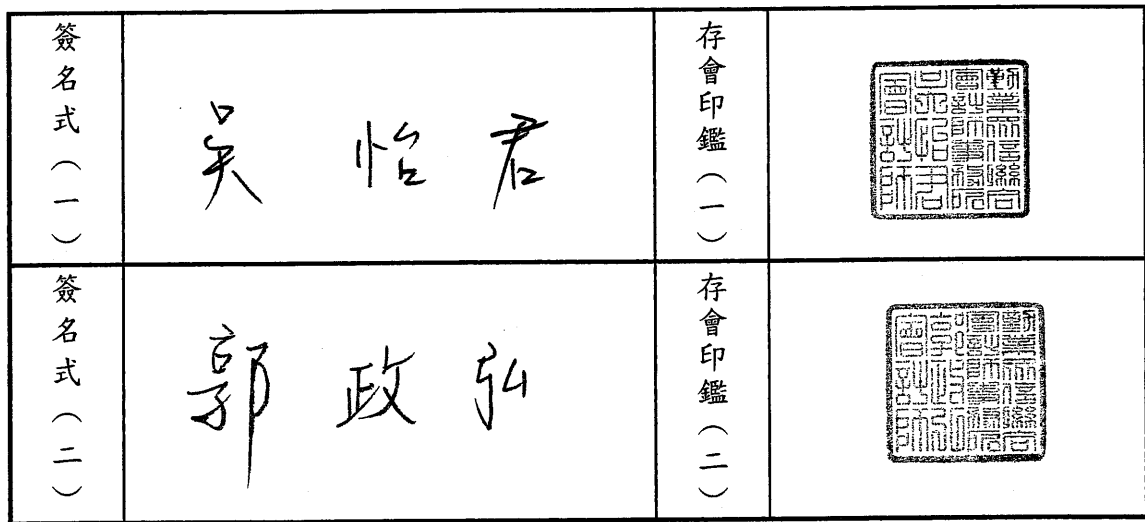 簽名式（一）
吳怡君
存會印鑑（一）
勤業眾信聯合
會計師事務所
吳怡君
會計師
簽名式（二）
郭政弘
存會印鑑（二）
勤業眾信聯合
會計師事務所
郭政弘
會計師